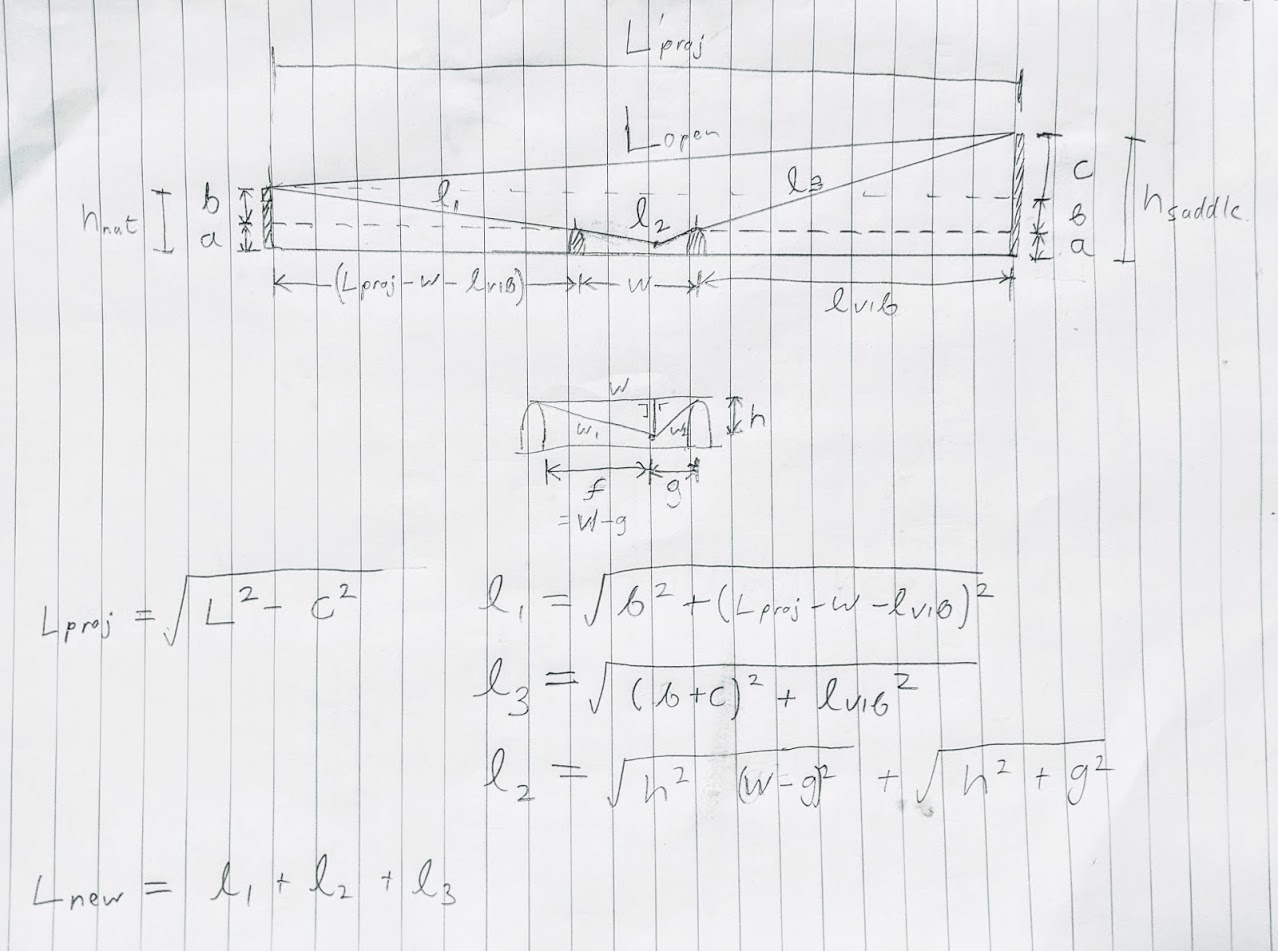 L'proj
L open
b
a
h nut
l₁
l₂
l₃
c
b
a
h saddle
(L proj - w - l vib)
w
l vib
w
w₁
w₂
h
f
g
= w - g
L proj = √(L² - c²)
l₁ = √(b² + (L proj - w - l vib)²)
l₃ = √((b + c)² + l vib²)
l₂ = √(h² (w - g)²) + √(h² + g²)
L new = l₁ + l₂ + l₃